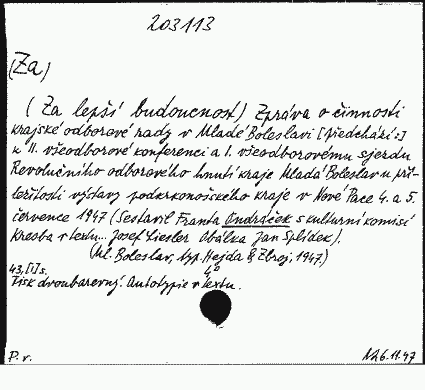 203113
(Za)
(Za lepší budoucnost) Zpráva o činnosti
krajské odborové rady v Mladé Boleslavi [předchází:]
k II. všeodborové konferenci a I. všeodborovému sjezdu
Revolučního odborového hnutí kraje Mladá Boleslav u pří-
ležitosti výstavy podkrkonošského kraje v Nové Pace 4. a 5.
července 1947 (Sestavil Franta Ondráček s kulturní komisí
Kresba v textu... Josef Liesler Obálka Jan Šplídek).
(Ml. Boleslav, typ. Hejda & Zbroj, 1947)
43,[1] s. 4°
Tisk dvoubarevný. Autotypie v textu.
P. r. N26.11.47